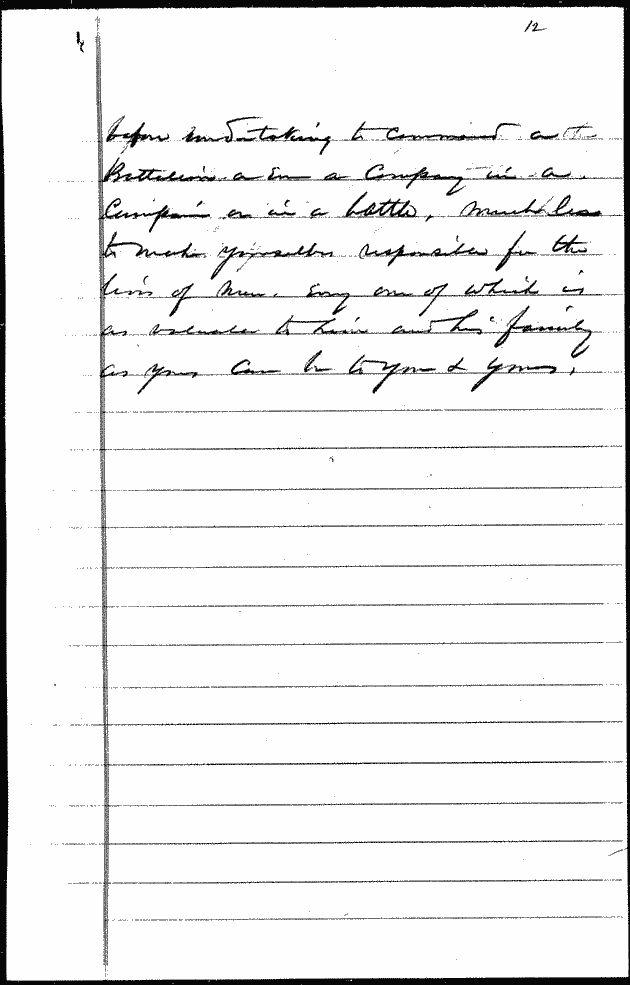 12
4
before undertaking to command a
Battalion or Even a Company in a
Campaign or in a battle, much less
to make yourselves responsible for the
lives of men. Every one of which is
as valuable to him and his family
as yours can be to you & yours.